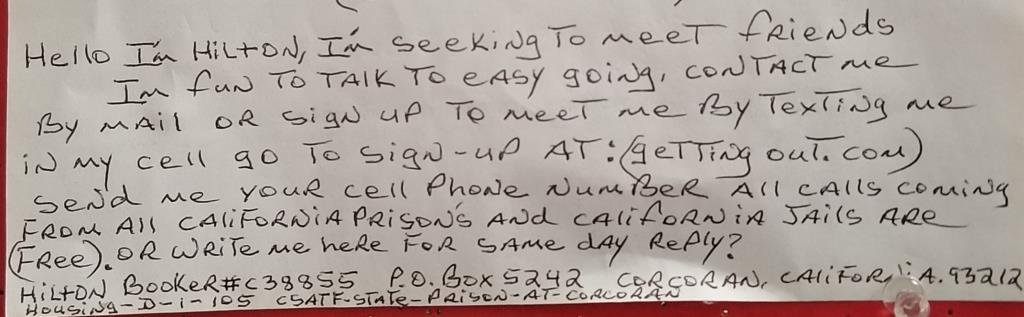 Hello I'm HiLtON, I'm seekiNg To meeT fRieNds
Im fuN To TAlk To eAsy goiNg, coNTAcT me
By mAil oR sigN up To meeT me By TexTiNg me
iN my cell go To sigN-up AT: (geTTiNg ouT. com)
seNd me youR cell PhoNe NumBeR All cAlls comiNg
FRom All CAliFoRNiA PRisoN's ANd cAlifoRNiA JAils ARe
(FRee). oR wRiTe me heRe FoR sAme dAy RePly?
HiLtoN BookeR#C38855 P.O. Box 5242 CoRcoRAN, CAliFoRNiA. 93212
HousiNg-D-1-105 CSATF-STATe-PRisoN-AT-CoRcoRAN